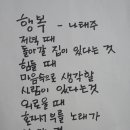 행복 - 나태주
저녁 때
돌아갈 집이 있다는 것
힘들 때
마음속으로 생각할
사람이 있다는 것
외로울 때
혼자서 부를 노래가